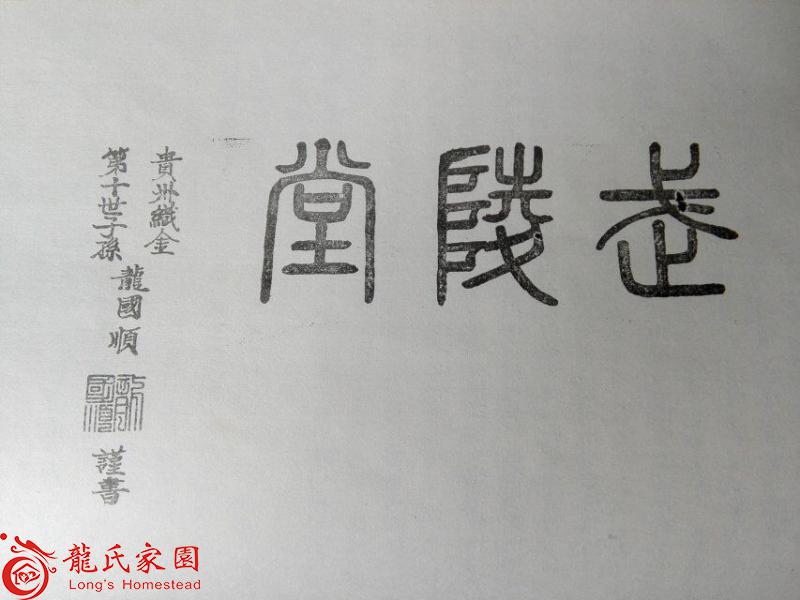 武陵堂
貴州織金
第十世子孫
龍國順
謹書
龍氏家園
Long's Homestead